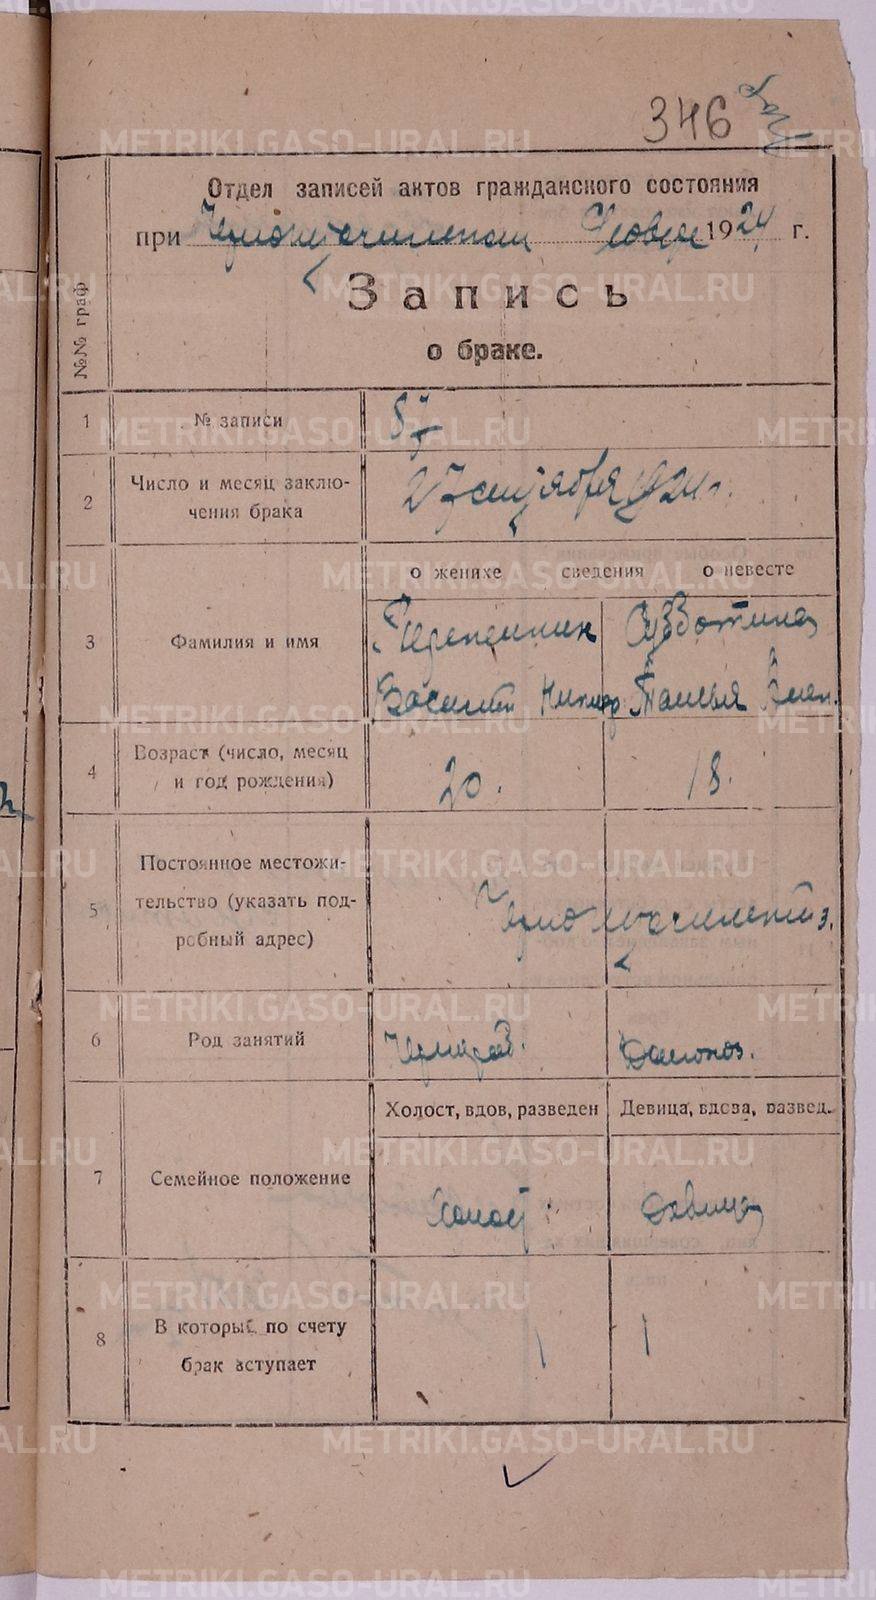 346
Отдел записей актов гражданского состояния
при Черноисточинском 1924 г.
Запись
о браке.
№№ граф
1 № записи 87
2 Число и месяц заклю-
чения брака 27 сентября 1924 г.
о женихе сведения о невесте
3 Фамилия и имя
Субботина
Василий Татьяна
4 Возраст (число, месяц
и год рождения) 20. 18.
5 Постоянное местожи-
тельство (указать под-
робный адрес) Черноисточинский з.
6 Род занятий Чернораб. Домохоз.
7 Семейное положение
Холост, вдов, разведен Девица, вдова, развед.
Холост Девица
8 В который по счету
брак вступает 1 1
METRIKI.GASO-URAL.RU